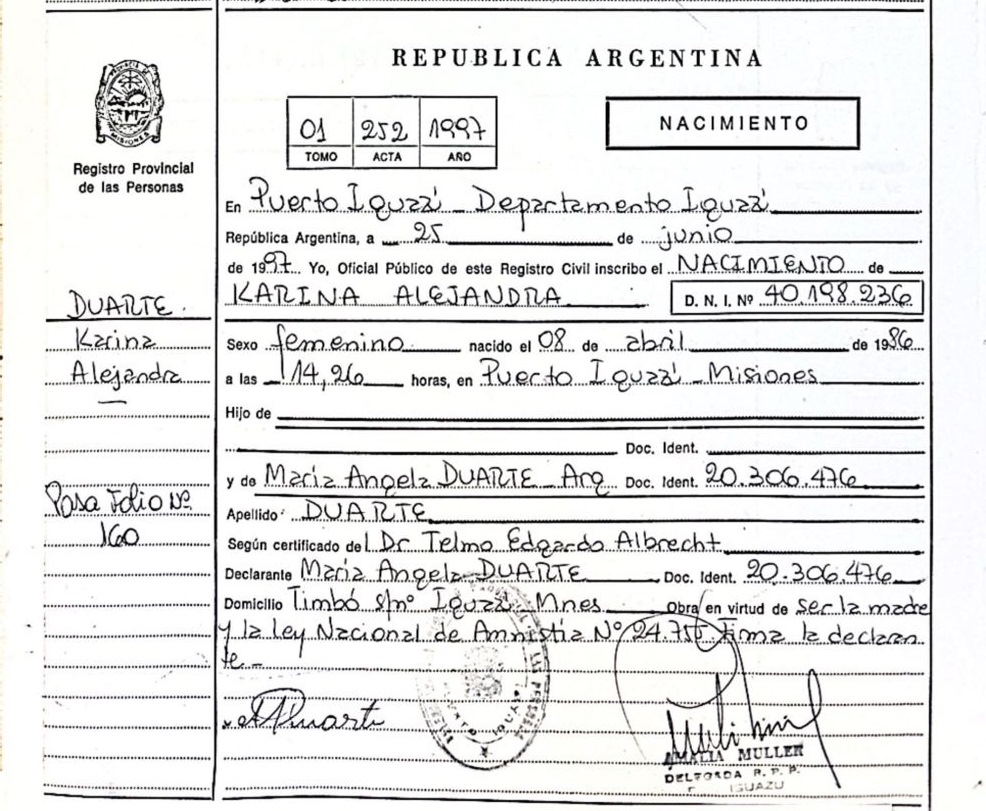 REPUBLICA ARGENTINA
PROVINCIA DE MISIONES
Registro Provincial
de las Personas
01 252 1997
TOMO ACTA AÑO
NACIMIENTO
En Puerto Iguazú - Departamento Iguazú
República Argentina, a 25 de junio
de 1997 Yo, Oficial Público de este Registro Civil inscribo el NACIMIENTO de
KARINA ALEJANDRA D. N. I. Nº 40.198.236
DUARTE.
Karina
Alejandra
Sexo femenino nacido el 08 de abril de 1986
a las 14,26 horas, en Puerto Iguazú - Misiones
Hijo de
Doc. Ident.
y de Maria Angela DUARTE - Arg Doc. Ident. 20.306.476
Pasa Folio Nº
160
Apellido DUARTE
Según certificado del Dr Telmo Edgardo Albrecht
Declarante Maria Angela DUARTE Doc. Ident. 20.306.476
Domicilio Timbó s/nº Iguazú - Mnes Obra en virtud de ser la madre
y la ley Nacional de Amnistia Nº 24.755 Firma la declaran
te -
A Duarte
AMALIA MULLER
R. P. P.
IGUAZU